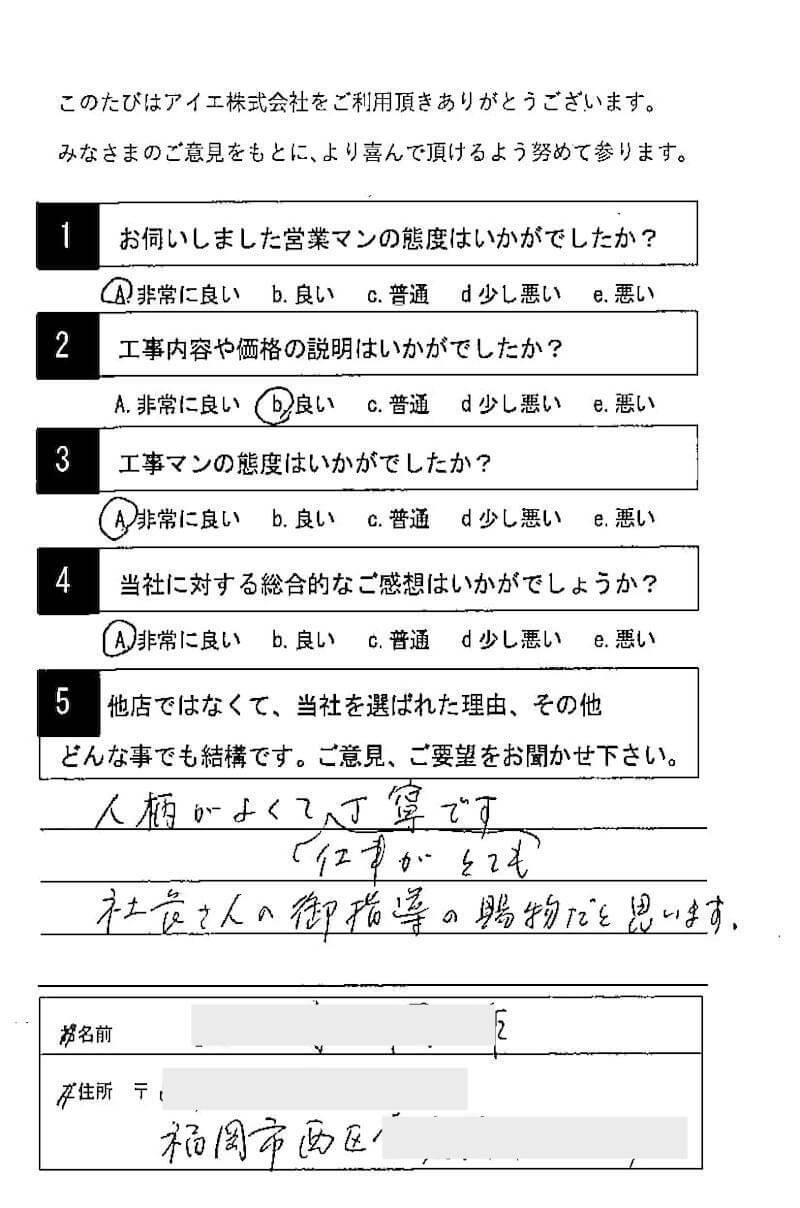 このたびはアイエ株式会社をご利用頂きありがとうございます。
みなさまのご意見をもとに、より喜んで頂けるよう努めて参ります。
1 お伺いしました営業マンの態度はいかがでしたか？
A. 非常に良い b. 良い c. 普通 d 少し悪い e. 悪い
2 工事内容や価格の説明はいかがでしたか？
A. 非常に良い b. 良い c. 普通 d 少し悪い e. 悪い
3 工事マンの態度はいかがでしたか？
A. 非常に良い b. 良い c. 普通 d 少し悪い e. 悪い
4 当社に対する総合的なご感想はいかがでしょうか？
A. 非常に良い b. 良い c. 普通 d 少し悪い e. 悪い
5 他店ではなくて、当社を選ばれた理由、その他
どんな事でも結構です。ご意見、ご要望をお聞かせ下さい。
人柄がよくて丁寧です
(仕事がとても)
社長さんの御指導の賜物だと思います.
お名前
ご住所 〒
福岡市西区